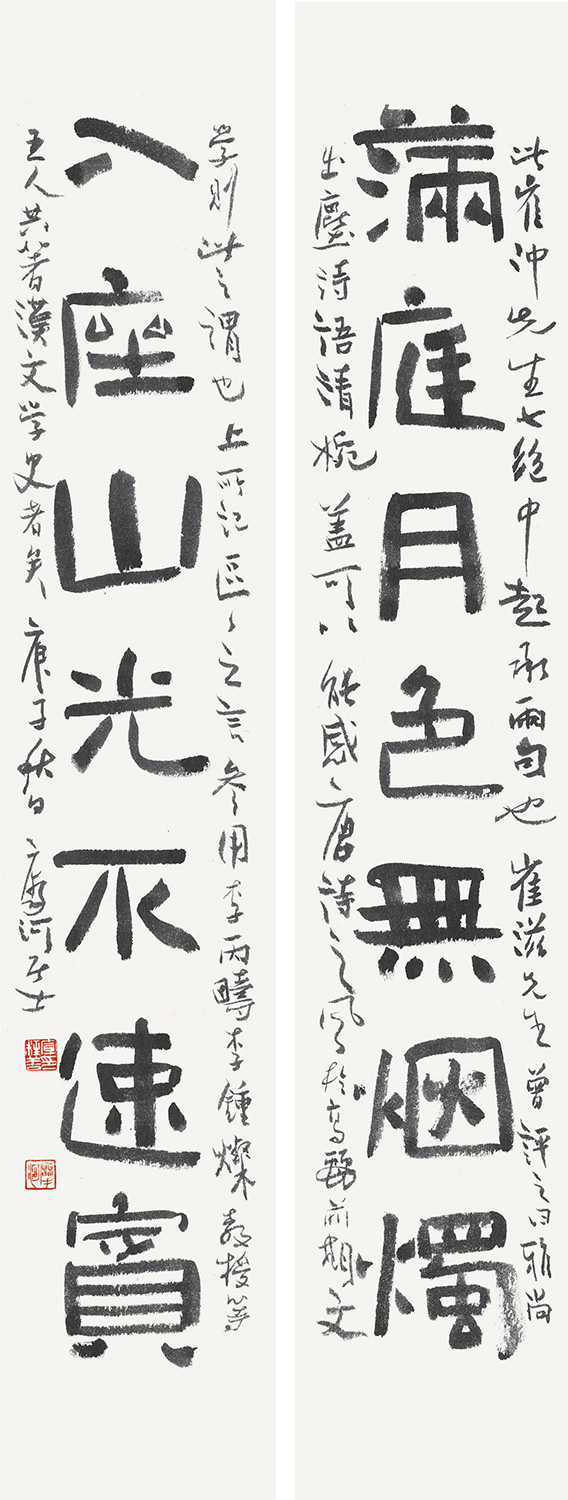 此崔沖先生七絕中起承兩句也 崔滋先生曾評之曰雅尚
滿庭月色無烟燭
出塵詩語清婉 蓋可以能感唐詩之風於高麗前期文
學則此之謂也 上所記區々之言參用李丙疇李鍾燦教授等
入座山光不速賓
五人共著漢文學史者矣 庚子秋日 河居士